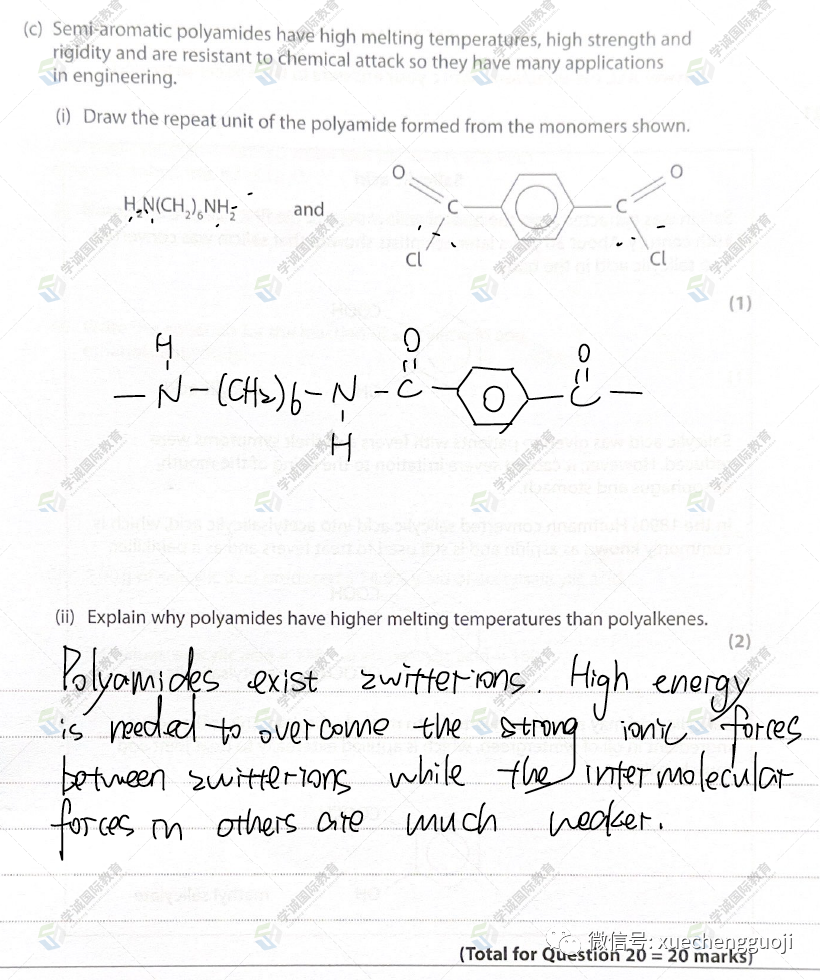 (c) Semi-aromatic polyamides have high melting temperatures, high strength and
rigidity and are resistant to chemical attack so they have many applications
in engineering.
(i) Draw the repeat unit of the polyamide formed from the monomers shown.
H₂N(CH₂)₆NH₂ and
O O
C C
Cl Cl
(1)
H O O
— N – (CH₂)6 – N – C C —
H
(ii) Explain why polyamides have higher melting temperatures than polyalkenes.
(2)
Polyamides exist zwitterions. High energy
is needed to overcome the strong ionic forces
between zwitterions while the intermolecular
forces in others are much weaker.
微信号: xuechengguoji
(Total for Question 20 = 20 marks)
学诚国际教育